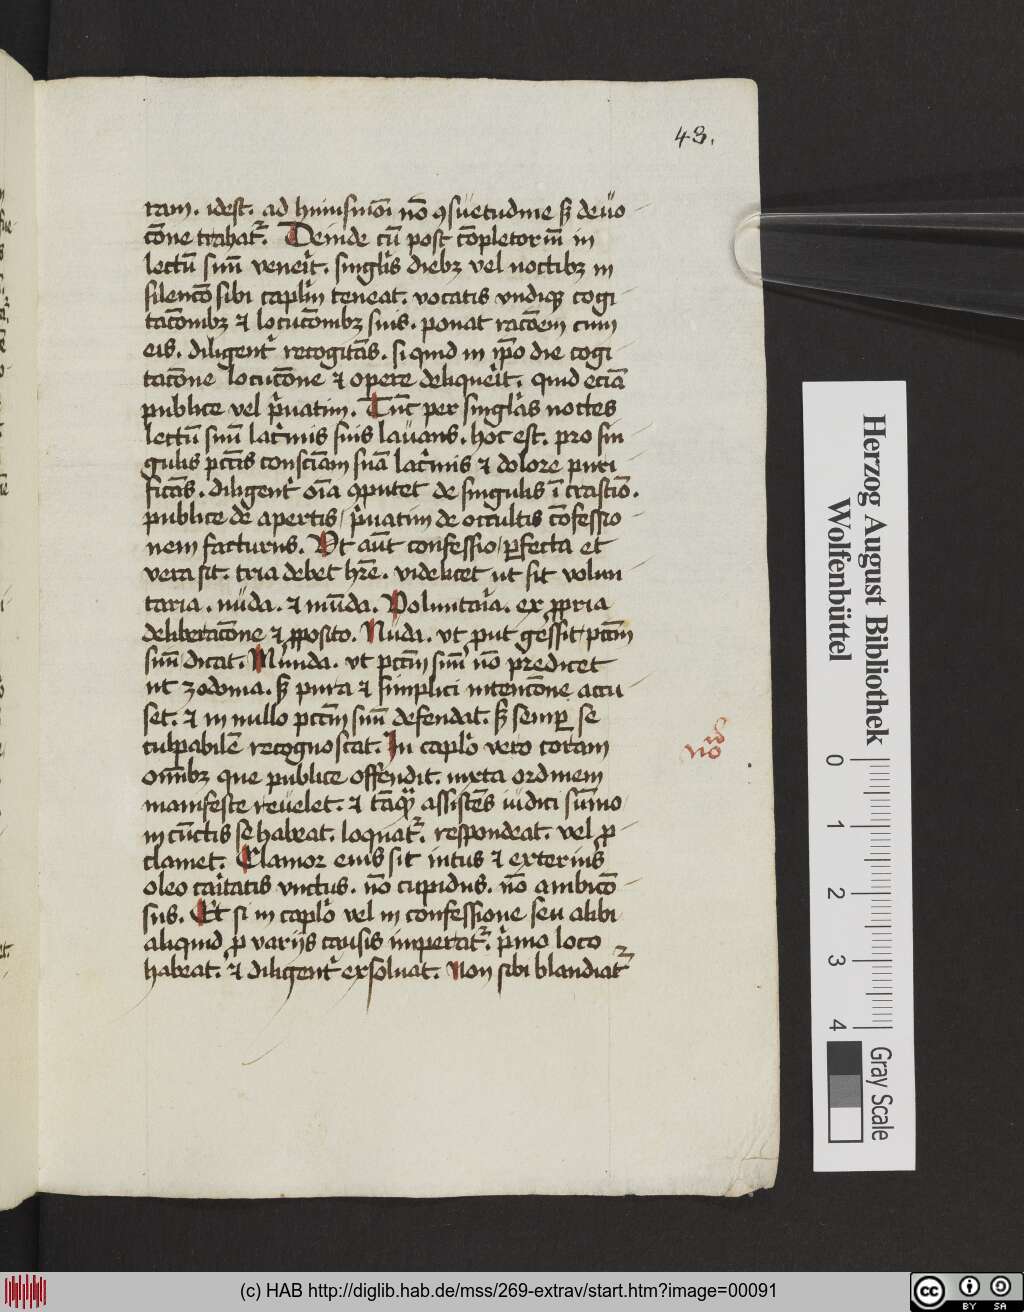 43.
ram. idest. ad huiusmōi nō ꝯsuetudine sꝫ deuo
cōne trahatᷣ. Deinde cū post cōpletoriū in
lectū suū veneͥit. singlis diebꝫ vel noctibꝫ in
silencō sibi caplm̄ teneat. vocatis vndiqꝫ cogi
tacōnibꝫ ⁊ locucōnibꝫ suis. ponat racōem cum
eis. diligentᷣ recogitās. si quid in ip̄o die cogi
tacōne locucōne ⁊ opere deliqueͥit. quid eciā
publice vel pͥuatim. Tūc per singlas noctes
lectū suū lacͥmis suis lauans. hoc est. pro sin
gulis pctīs consciām suā lacͥmis ⁊ dolore puri
ficās. diligentᷣ oīa ꝯputet de singulis ī crastīo.
publice de apertis / pͥuatim de occultis cōfessio
nem facturus. Vt aūt confessio / ꝑfecta et
vera sit. tria debet hr̄e. videlicet ut sit volun
taria. nuda. ⁊ mūda. Voluntaͥia. ex ꝓpria
deliberacōne ⁊ ꝓposito. Nuda. vt put gessit pctm̄
suū dicat. Munda. vt pctm̄ suū nō predicet
ut zodoma. sꝫ pura ⁊ simplici intencōne accu
set. ⁊ in nullo pctm̄ suū defendat. sꝫ semꝑ se
culpabilē recognoscat. In caplo vero coram
omībꝫ que publice offendit. iuxta ordinem
manifeste reuelet. ⁊ tāqᷓ assistēs iudici sūmo
in cūctis se habeat. loquatᷣ. respondeat. vel ꝓ
clamet. Clamor eius sit intus ⁊ exterius
oleo caͥitatis vnctus. nō cupidus. nō ambicō
sus. Et si in caplo vel in confessione seu alibi
aliquid ꝓ varijs causis imperatᷣ. pͥmo loco
habeat. ⁊ diligentᷣ exsoluat. Non sibi blandiatᷣ
Herzog August Bibliothek
Wolfenbüttel
0 1 2 3 4
Gray Scale
(c) HAB http://diglib.hab.de/mss/269-extrav/start.htm?image=00091
cc BY SA